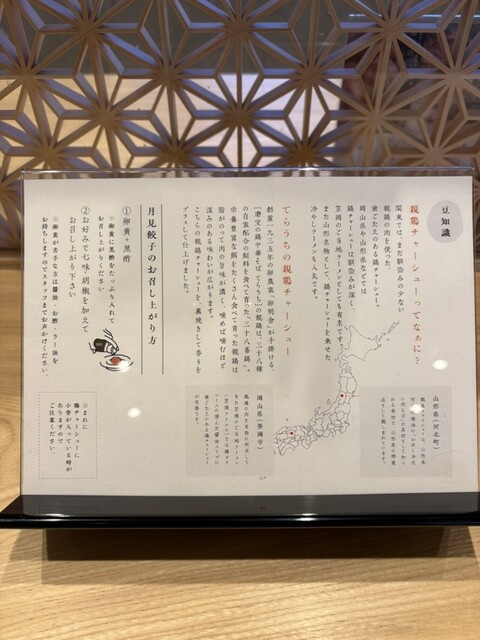 豆知識
親鶏チャーシューってなぁに？
関東では、まだ馴染みの少ない
親鶏の肉を使った、
歯ごたえのある鶏チャーシュー。
岡山県や山形県などでは
鶏チャーシューは馴染みが深く、
笠岡のご当地ラーメンとしても有名です。
また山形名物として、鶏チャーシューを乗せた
冷やしラーメンも人気です。
てらうちの親鶏チャーシュー
創業一九三五年の卵農家「卵明舎」が手掛ける、
「磨宝の鶏中華そば てらうち」の親鶏は、三十八種
の自家配合の飼料を食べて育った「三十八番鶏」。
栄養豊富な餌をたくさん食べて育った親鶏は
脂がのって肉の旨味が濃く、噛めば噛むほど
深みのある味わいが広がります。
こちらの親鶏チャーシューを、藁焼きして香りを
プラスして仕上げました。
月見餃子のお召し上がり方
①卵黄+黒酢
※卵黄に黒酢をたっぷり入れて
お召し上がりください
②お好みで七味・胡椒を加えて
お召し上がり下さい
※卵黄が苦手な方は醤油・お酢・ラー油を
お持ちしますのでスタッフまでお声かけください。
山形県(河北町)
岡山県(笠岡市)
※まれに
鶏チャーシューに
小骨が入っている時が
ありますので
ご注意ください